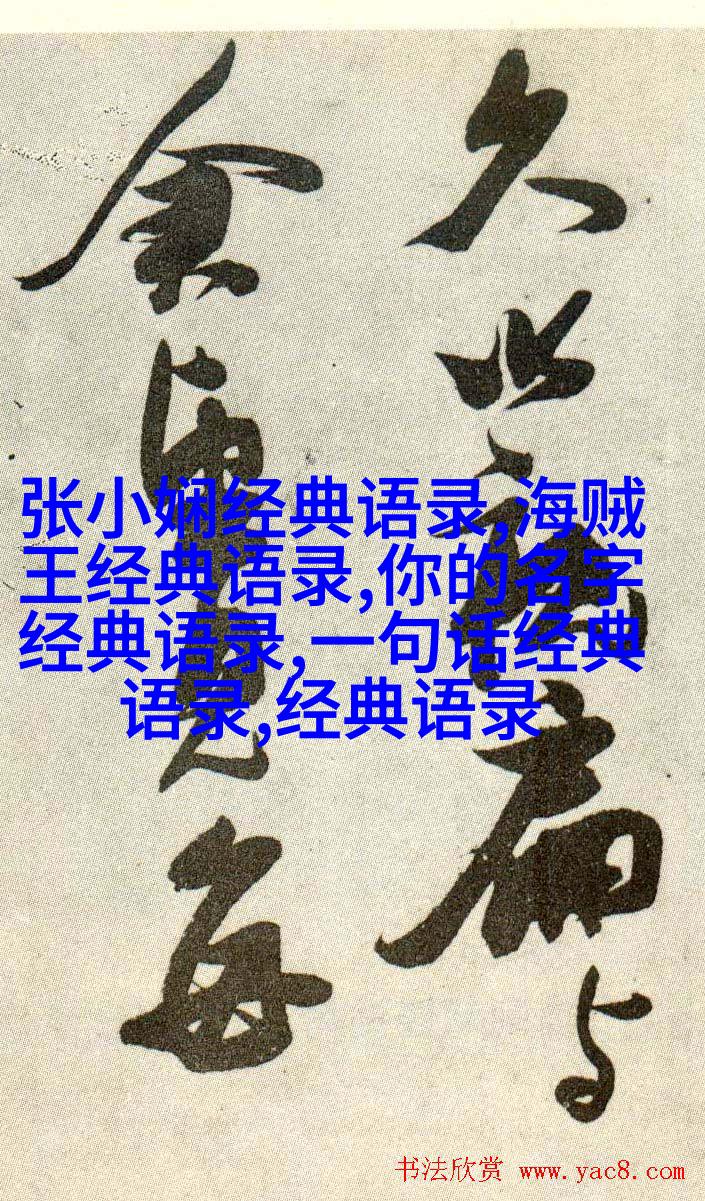 久此、扁与
余通見每
张小娴经典语录,海贼
王经典语录,你的名字
经典语录,一句话经典
语录,经典语录
书法欣赏 www.yac8.com